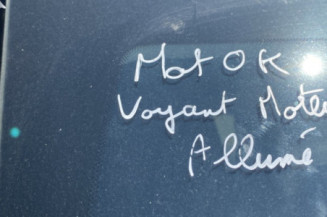 Mot OK
Voyant Mote
Allumé